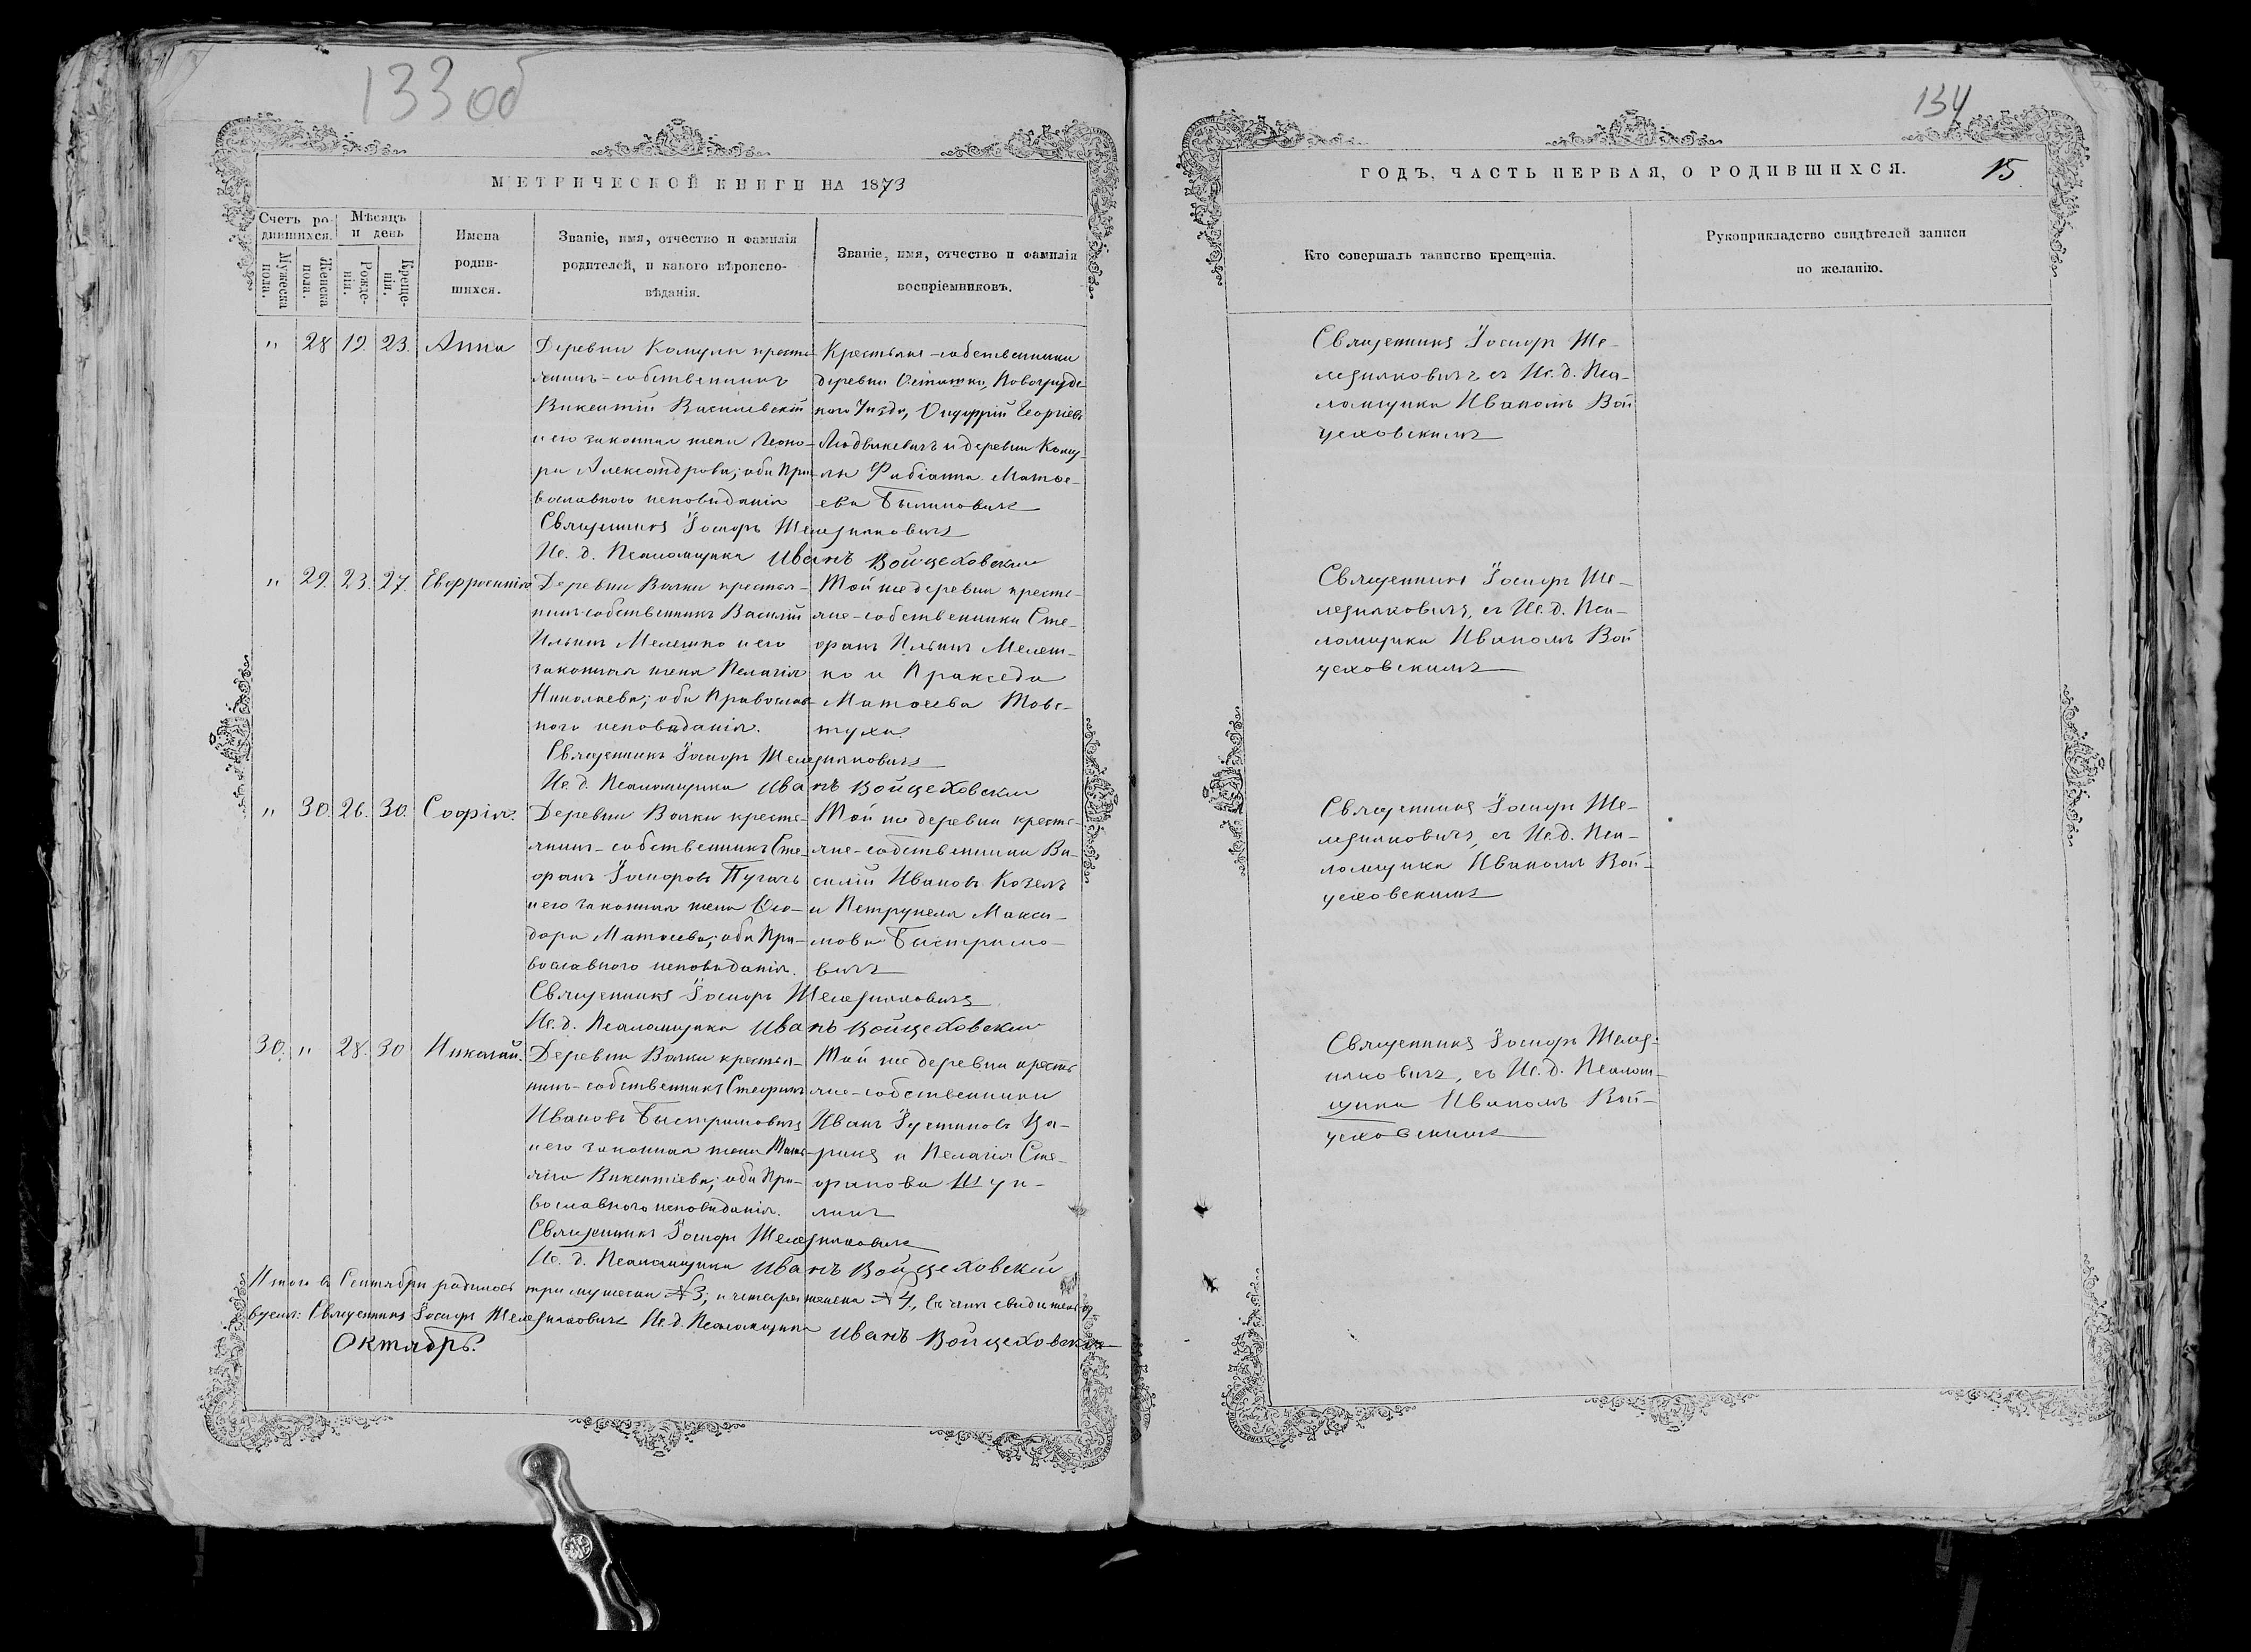 133 об
МЕТРИЧЕСКОЙ КНИГИ НА 1873
Счетъ ро-
дившихся.
Мѣсяцъ
и день
Мужеска
пола.
Женска
пола.
Рожде-
нія.
Креще-
нія.
Имена
родив-
шихся.
Званіе, имя, отчество и фамилія
родителей, и какого вѣроиспо-
вѣданія.
Званіе, имя, отчество и фамилія
воспріемниковъ.
" 28 19. 23. Анна
Деревни Комули кресть-
янинъ-собственникъ
Викентій Василевскій
и его законная жена Леоно-
ра Александрова; оба Пра-
вославнаго исповѣданія
Крестьяне-собственники
деревни Осташки, Новогрудс-
каго Уѣзда, Онуфрій Георгіевъ
Людвикевичъ и деревни Кому-
ли Фабіанна Матѳе-
ева Былиновичъ
Священникъ Іосифъ Шелепиковичъ
Ис. д. Псаломщика Иванъ Войцеховскій
" 29. 23. 27. Евфросинія
Деревни Волки крестья-
нинъ-собственникъ Василій
Ильинъ Мелешко и его
законная жена Пелагія
Николаева; оба Православ-
наго исповѣданія.
Той же деревни кресть-
яне-собственники Сте-
фанъ Ильинъ Мелеш-
ко и Пракседа
Матѳеева Товс-
туха.
Священникъ Іосифъ
Ис. д. Псаломщика Иванъ Войцеховскій
" 30. 26. 30. Софія.
Деревни Волки кресть-
янинъ-собственникъ Сте-
фанъ Іосифовъ Пугачъ
и его законная жена Ѳео-
дора Матѳеева; оба Пра-
вославнаго исповѣданія.
Той же деревни кресть-
яне-собственники Ва-
силій Ивановъ Козелъ
и Петрунеля Макси-
мова Быстримо-
вичъ
Священникъ Іосифъ
Ис. д. Псаломщика Иванъ Войцеховскій
30. " 28. 30 Николай.
Деревни Волки крестья-
нинъ-собственникъ Стефанъ
Ивановъ Быстримовичъ
и его законная жена
Викентіева; оба Пра-
вославнаго исповѣданія.
Той же деревни кресть-
яне-собственники
Иванъ Іустиновъ Ца-
рикъ и Пелагія Сте-
фанова
Священникъ Іосифъ
Ис. д. Псаломщика Иванъ Войцеховскій
Итого въ Сентябрѣ родилось три мужеска № 3, и четыре женска № 4, въ чемъ свидѣтельст-
вуемъ: Священникъ Іосифъ Ис. д. Псаломщика Иванъ Войцеховскій
Октябрь.
134
ГОДЪ, ЧАСТЬ ПЕРВАЯ, О РОДИВШИХСЯ. 15.
Кто совершалъ таинство крещенія.
Рукоприкладство свидѣтелей записи
по желанію.
Священникъ Іосифъ
съ Ис. д. Пса-
ломщика Иваномъ Вой-
цеховскимъ
Священникъ Іосифъ
съ Ис. д. Пса-
ломщика Иваномъ Вой-
цеховскимъ
Священникъ Іосифъ
съ Ис. д. Пса-
ломщика Иваномъ Вой-
цеховскимъ
Священникъ Іосифъ
съ Ис. д. Псалом-
щика Иваномъ Вой-
цеховскимъ